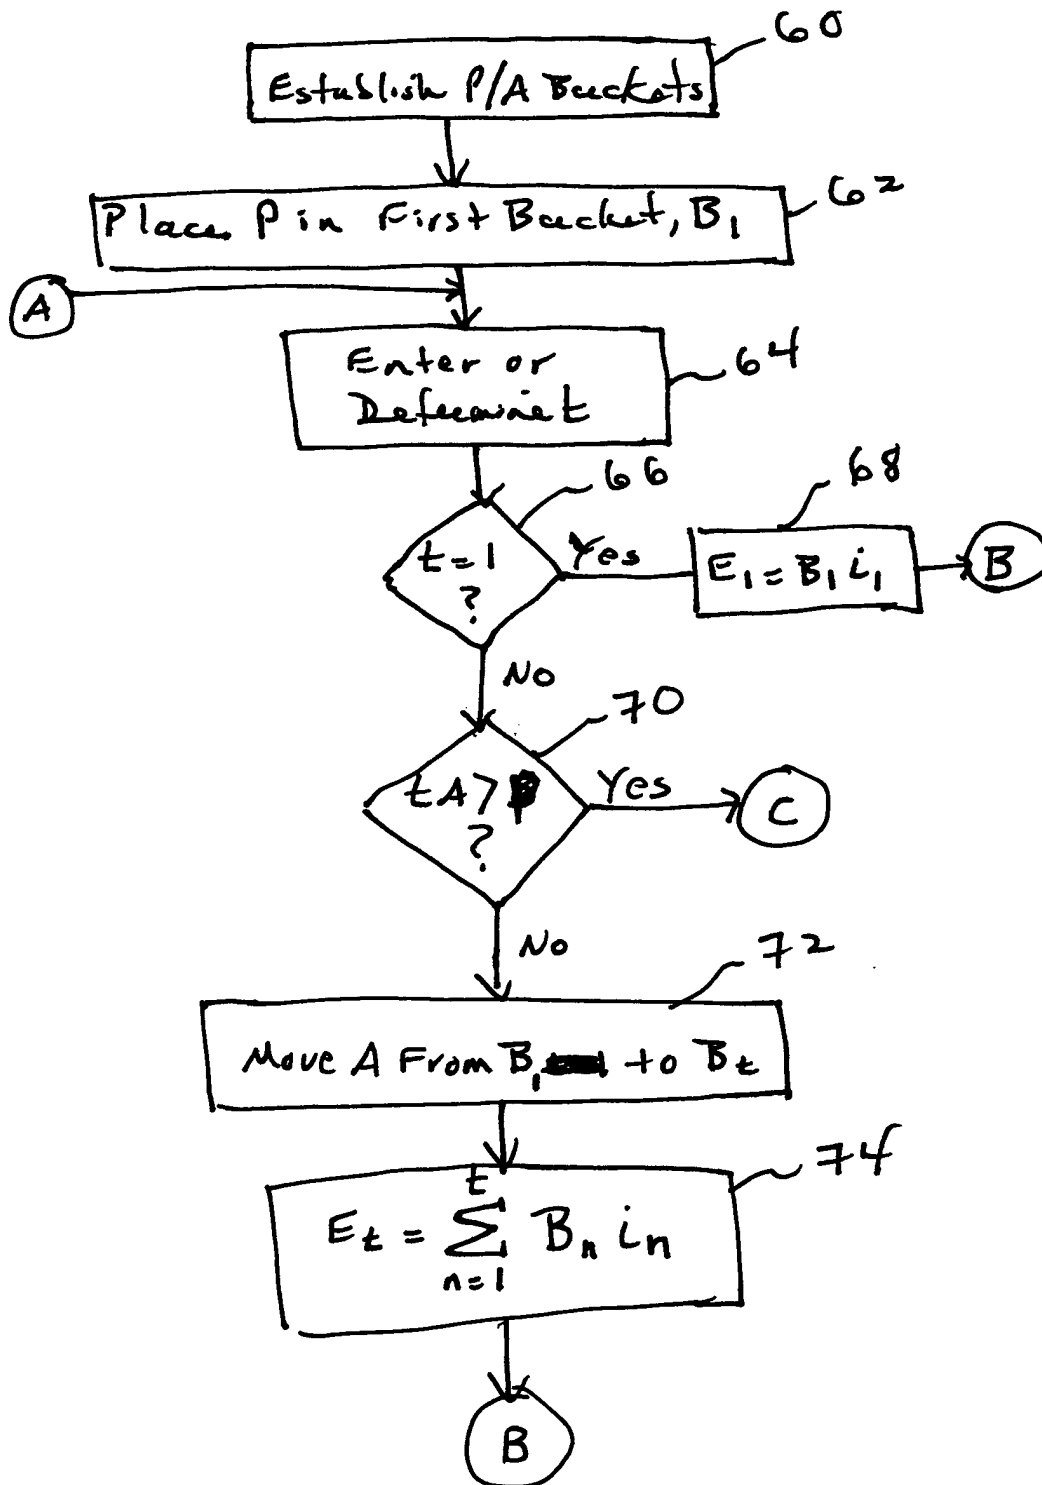 60
Establish P/A Buckets
62
Place P in First Bucket, B₁
A
64
Enter or
Determine t
66
68
t = 1
?
Yes
E₁ = B₁ i₁
B
No
70
tA > P
?
Yes
C
No
72
Move A From B₁ to Bₜ
74
t
Eₜ = ∑ Bₙ iₙ
n = 1
B